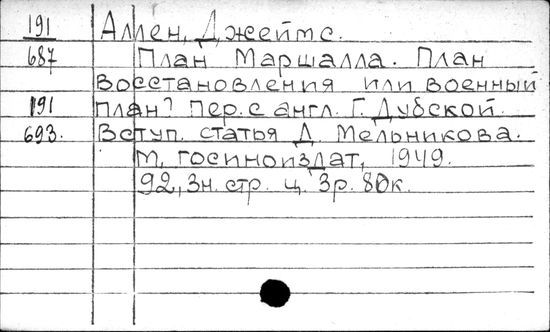 191 Аллен, Джеймс.
687 План Маршалла. План
восстановления или военный
191 план? Пер. с англ. Г. Дубской.
693. Вступ. статья Д. Мельникова.
М, госиноиздат, 1949.
92, 3н. стр. ц. 3р. 80к.